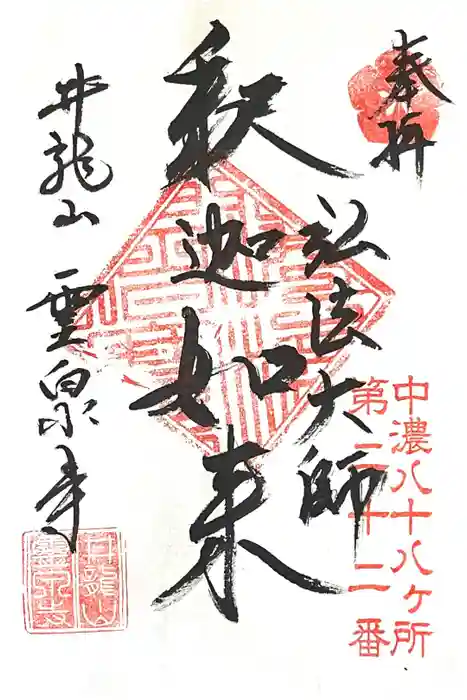 奉拝
中濃八十八ヶ所
第二十二番
弘法大師
釈迦如来
井龍山 霊泉寺
井龍山
靈泉寺